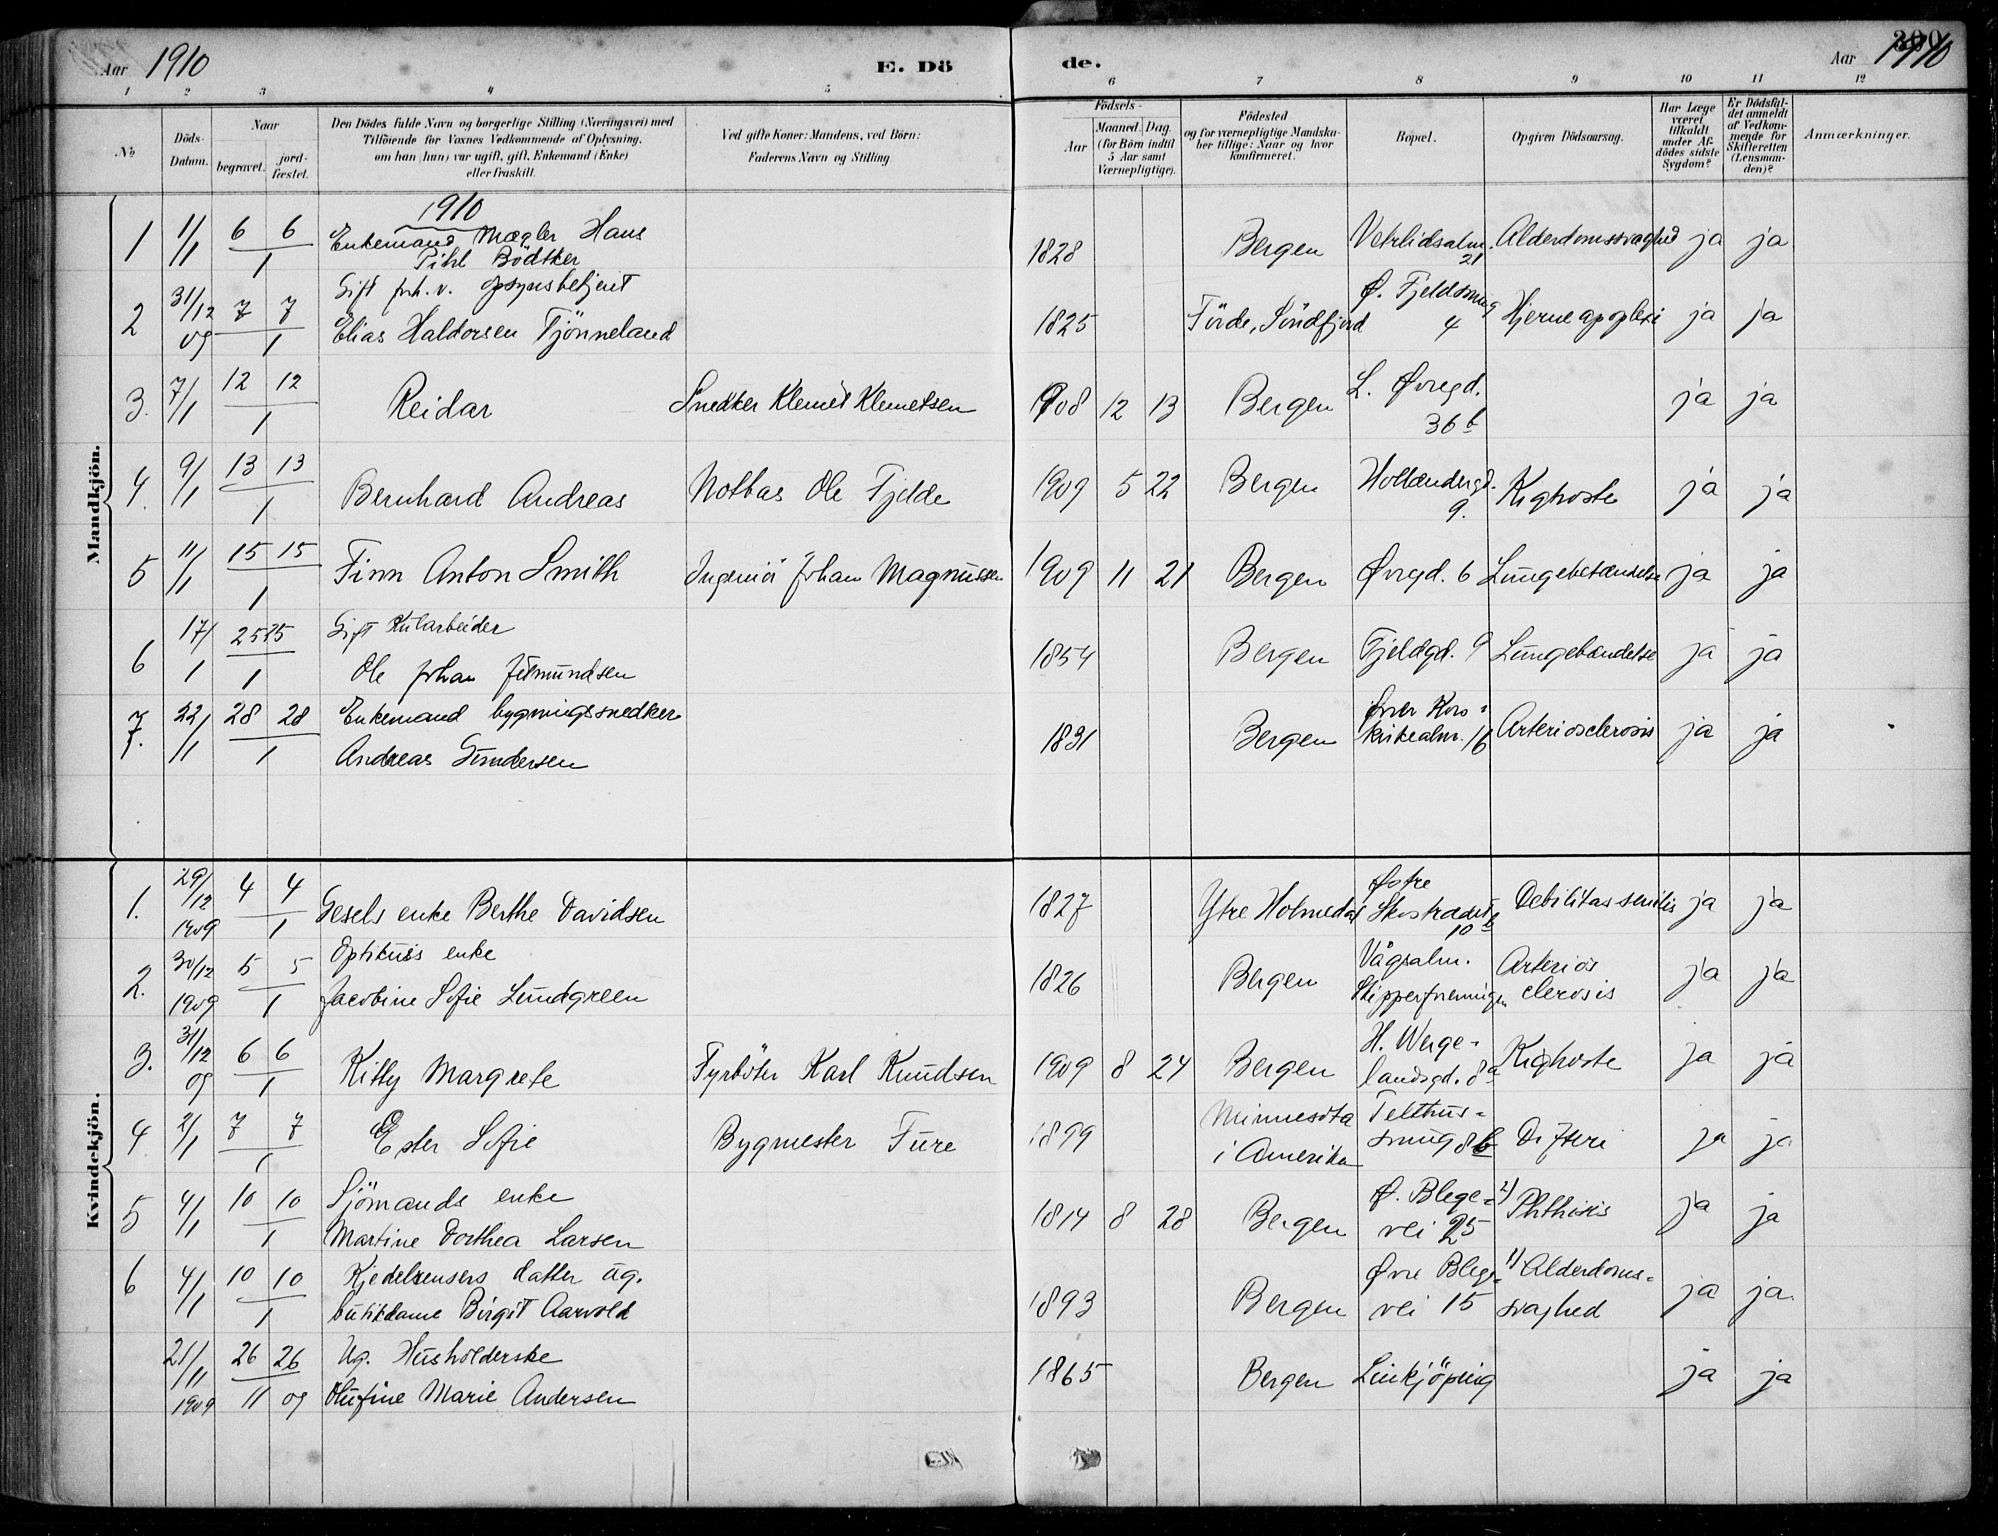 Aar 1910 E. Dö de. Aar 1910 300
1 2 3 4 5 6 7 8 9 10 11 12
№ Döds-Datum. Naar begravet. jord-fæstet. Den Dödes fulde Navn og borgerlige Stilling (Næringsvei) med Tilföiende for Voxnes Vedkommende af Oplysning, om han (hun) var ugift, gift, Enkemand (Enke) eller fraskilt. Ved gifte Koner: Mandens, ved Börn: Faderens Navn og Stilling. Födsels- Aar Maaned. Dag. (for Börn indtil 5 Aar samt Værnepligtige). Födested og for værnepligtige Mandskaber tillige: Naar og hvor konfirmeret. Bopæl. Opgiven Dödsaarsag. Har Læge været tilkaldt under Afdödes sidste Sygdom? Er Dödsfaldet anmeldt af Vedkommende for Skifteretten (Lensmanden)? Anmærkninger.
Mandkjön.
1910
1 1/1 6 6 1 Enkemand Mægler Hans
Pihl Bödtker 1828 Bergen Vetrlidsalm. 21 Alderdomssvaghed ja ja
2 31/12 09 7 7 1 Gift fhv. v. opsynsbetjent
Elias Haldorsen Tjönneland 1825 Förde, Söndfjord Ø. Fjeldsmug 4 Hjerneapoplexi ja ja
3. 7/1 12 12 1 Reidar Snedker Klemet Klemetsen 1908 12 13 Bergen L. Øvregd. 36 b ja ja
4. 9/1 13 13 1 Bernhard Andreas Notbas Ole Fjelde 1909 5 22 Bergen Hollændergd. 9. Kighoste ja ja
5 11/1 15 15 1 Finn Anton Smith Ingeniör Johan Magnussen 1909 11 21 Bergen Øvregd. 6 Lungebetændelse ja ja
6 17/1 25 25 1 Gift Kularbeider
Ole Johan 1854 Bergen Fjeldgd. 9 Lungebændelse ja ja
7. 22/1 28 28 1 Enkemand bygningssnedker
Andreas Gundersen 1831 Bergen Øvre Kors-kirkealm. 16 Arteriosclerosis ja ja
Kvindekjön.
1. 29/12 1909 4 4 1 Gesels enke Berthe Davidsen 1827 Ytre Holmedal Østre Skostrædet 10 b Debilitas senilis ja ja
2. 30/12 1909 5 5 1 Optikuis enke
Jacobine Sofie Lundgreen 1826 Bergen Vågsalm. Skipperforeningen Arterios clerosis ja ja
3. 31/12 09 6 6 1 Kitty Margrete Fyrböter Karl Knudsen 1909 8 24 Bergen H. Werge-landsgd. 8a Kighoste ja ja
4 2/1 7 7 1 Ester Sofie Bygmester Fure 1899 Minnesota i Amerika Telthus-smug 8 b Difteri ja ja
5 4/1 10 10 1 Sjömands enke
Martine Dorthea Larsen 1814 8 28 Bergen Ø. Blege-vei 25 2) Phthisis ja ja
6 4/1 10 10 1 Kjedelrensers datter ug.
butikdame Birgit Aarvold 1893 Bergen Øvre Blege-vei 15 1) Alderdoms-svaghed ja ja
21/11 1909 26 26 11 09 Ug. Husholderske
Olufine Marie Andersen 1865 Bergen Linkjöping ja ja